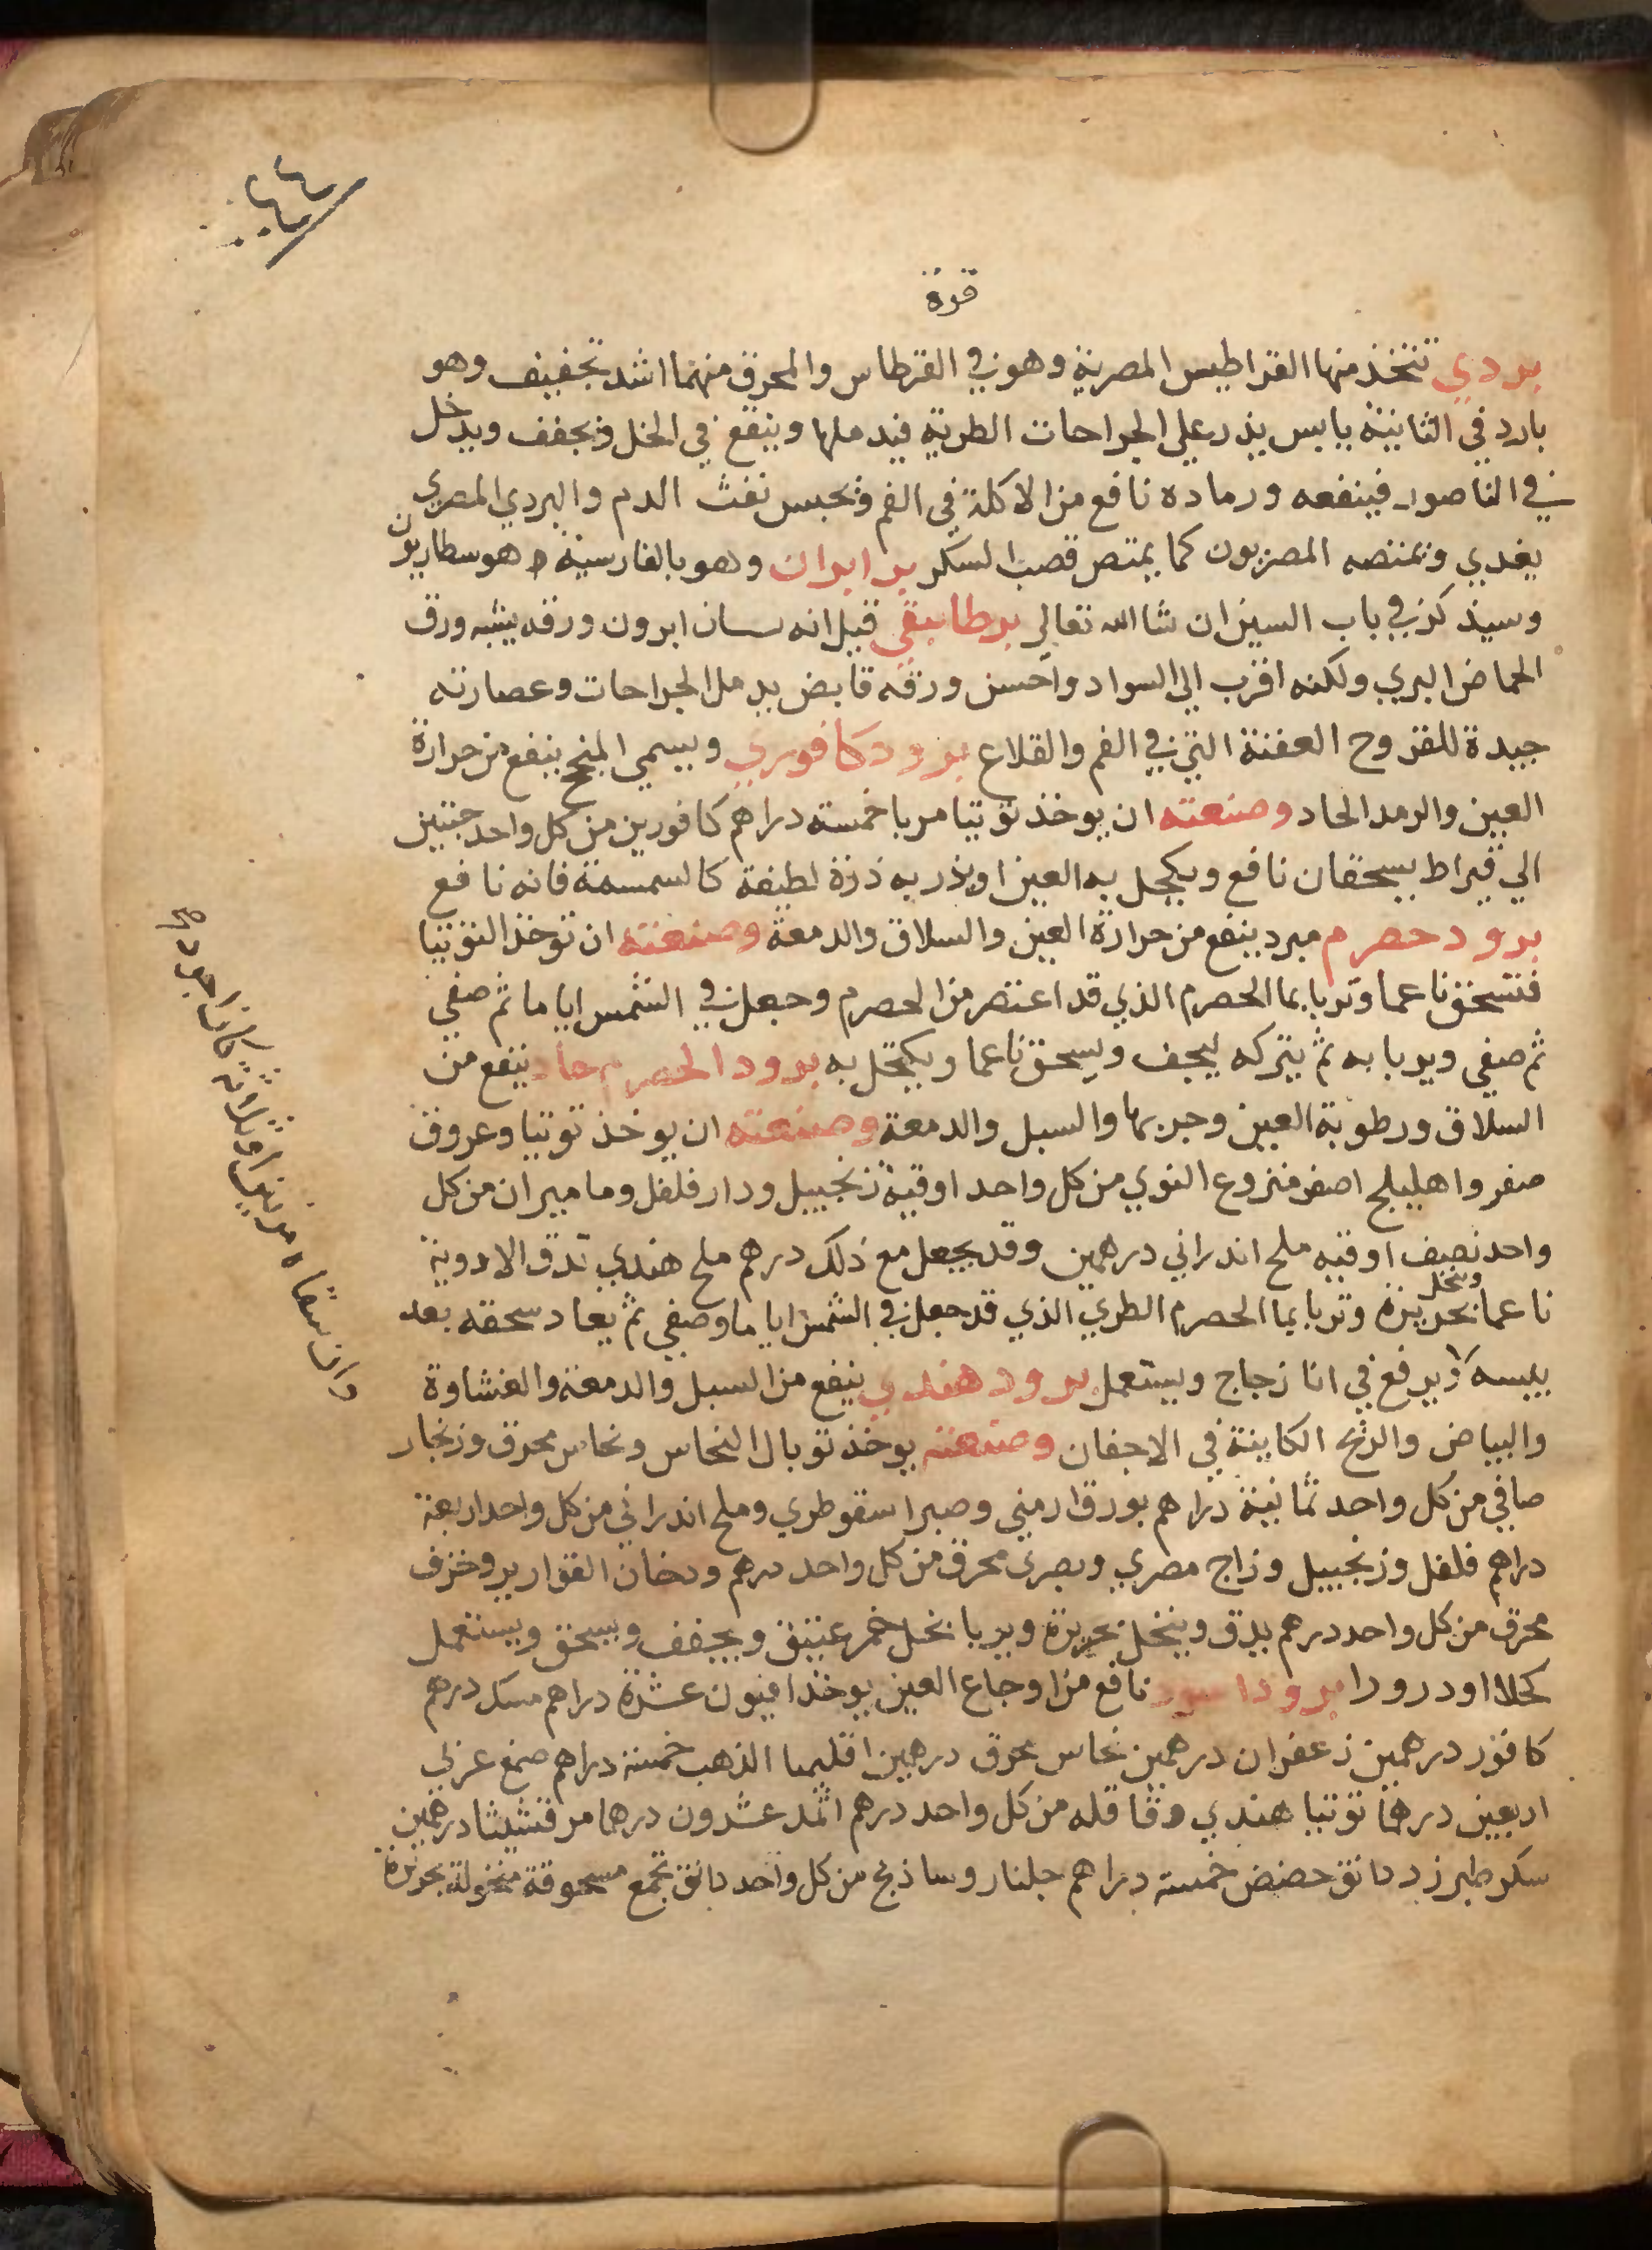 ٤٤
قوة
بردي تتخذ منها القراطيس المصرية وهو في القرطاس والمحرق منهما اشد تجفيف وهو
بارد في الثانية يابس يذر علي الجراحات الطرية فيدملها وينقع في الخل ويجفف ويدخل
في الناصور فينفعه ورماده نافع من الاكلة في الفم ويحبس نفث الدم والبردي المصري
يغدي ويمتصه المصريون كما يمتص قصب السكر بر ابران وهو بالفارسية هو سطاريون
وسيذكر في باب السين ان شا الله تعالي برطانيقي قيل انه بستان ابرون ورقه يشبه ورق
الحماض البري ولكنه اقرب الي السواد واحسن ورقه قابض يدمل الجراحات وعصارته
جيدة للقروح العفنة التي في الفم والقلاع برود كافوري ويسمي المنجح ينفع من حرارة
العين والرمد الحاد وصنعته ان يوخذ توتيا مربا خمسة دراهم كافورين من كل واحد حبتين
الي قيراط يسحقان نافع ويكحل به العين او يذر به ذرة لطيفة كالسمسمة فانه نافع
برود حصرم مبرد ينفع من حرارة العين والسلاق والدمعة وصنعته ان توخذ التوتيا
فتسحق ناعما وتربا بما الحصرم الذي قد اعتصر من الحصرم وجعل في الشمس اياما ثم صفي
ثم صفي ويربا به ثم يتركه ليجف ويسحق ناعما ويكتحل به برود الحصرم حاد ينفع من
السلاق ورطوبة العين وجربها والسبل والدمعة وصنعته ان يوخذ توتيا وعروق
صفر واهليلج اصفر منزوع النوي من كل واحد اوقية زنجبيل ودار فلفل وماميران من كل
واحد نصف اوقيه ملح اندراني درهمين وقد يجعل مع ذلك درهم ملح هندي تدق الادوية
ناعما وتنخل بحريرة وتربا بما الحصرم الطري الذي قد جعل في الشمس اياما وصفي ثم يعاد سحقه بعد
يبسه ويرفع في انا زجاج ويستعمل برود هندي ينفع من السبل والدمعة والغشاوة
والبياض والريح الكاينة في الاجفان وصنعته يوخذ توبال النحاس ونحاس محرق وزنجار
صافي من كل واحد ثمانية دراهم بورق ارمني وصبر اسقوطري وملح اندراني من كل واحد اربعة
دراهم فلفل وزنجبيل وزاج مصري وبصري محرق من كل واحد درهم ودخان القوارير وخزف
محرق من كل واحد درهم يدق وينخل بحريرة ويربا بخل خمر عتيق ويجفف ويسحق ويستعمل
كحلا او درورا برود اسود نافع من اوجاع العين يوخذ افيون عشرة دراهم مسك درهم
كافور درهمين زعفران درهمين نحاس محرق درهمين اقليميا الذهب خمسة دراهم صمغ عربي
اربعين درهما توتيا هندي وقاقله من كل واحد درهم اثمد عشرون درهما مرقشيثا درهمين
سكر طبرزد دانق حضض خمسة دراهم جلنار وساذج من كل واحد دانق تجمع مسحوقة منخولة بحريرة